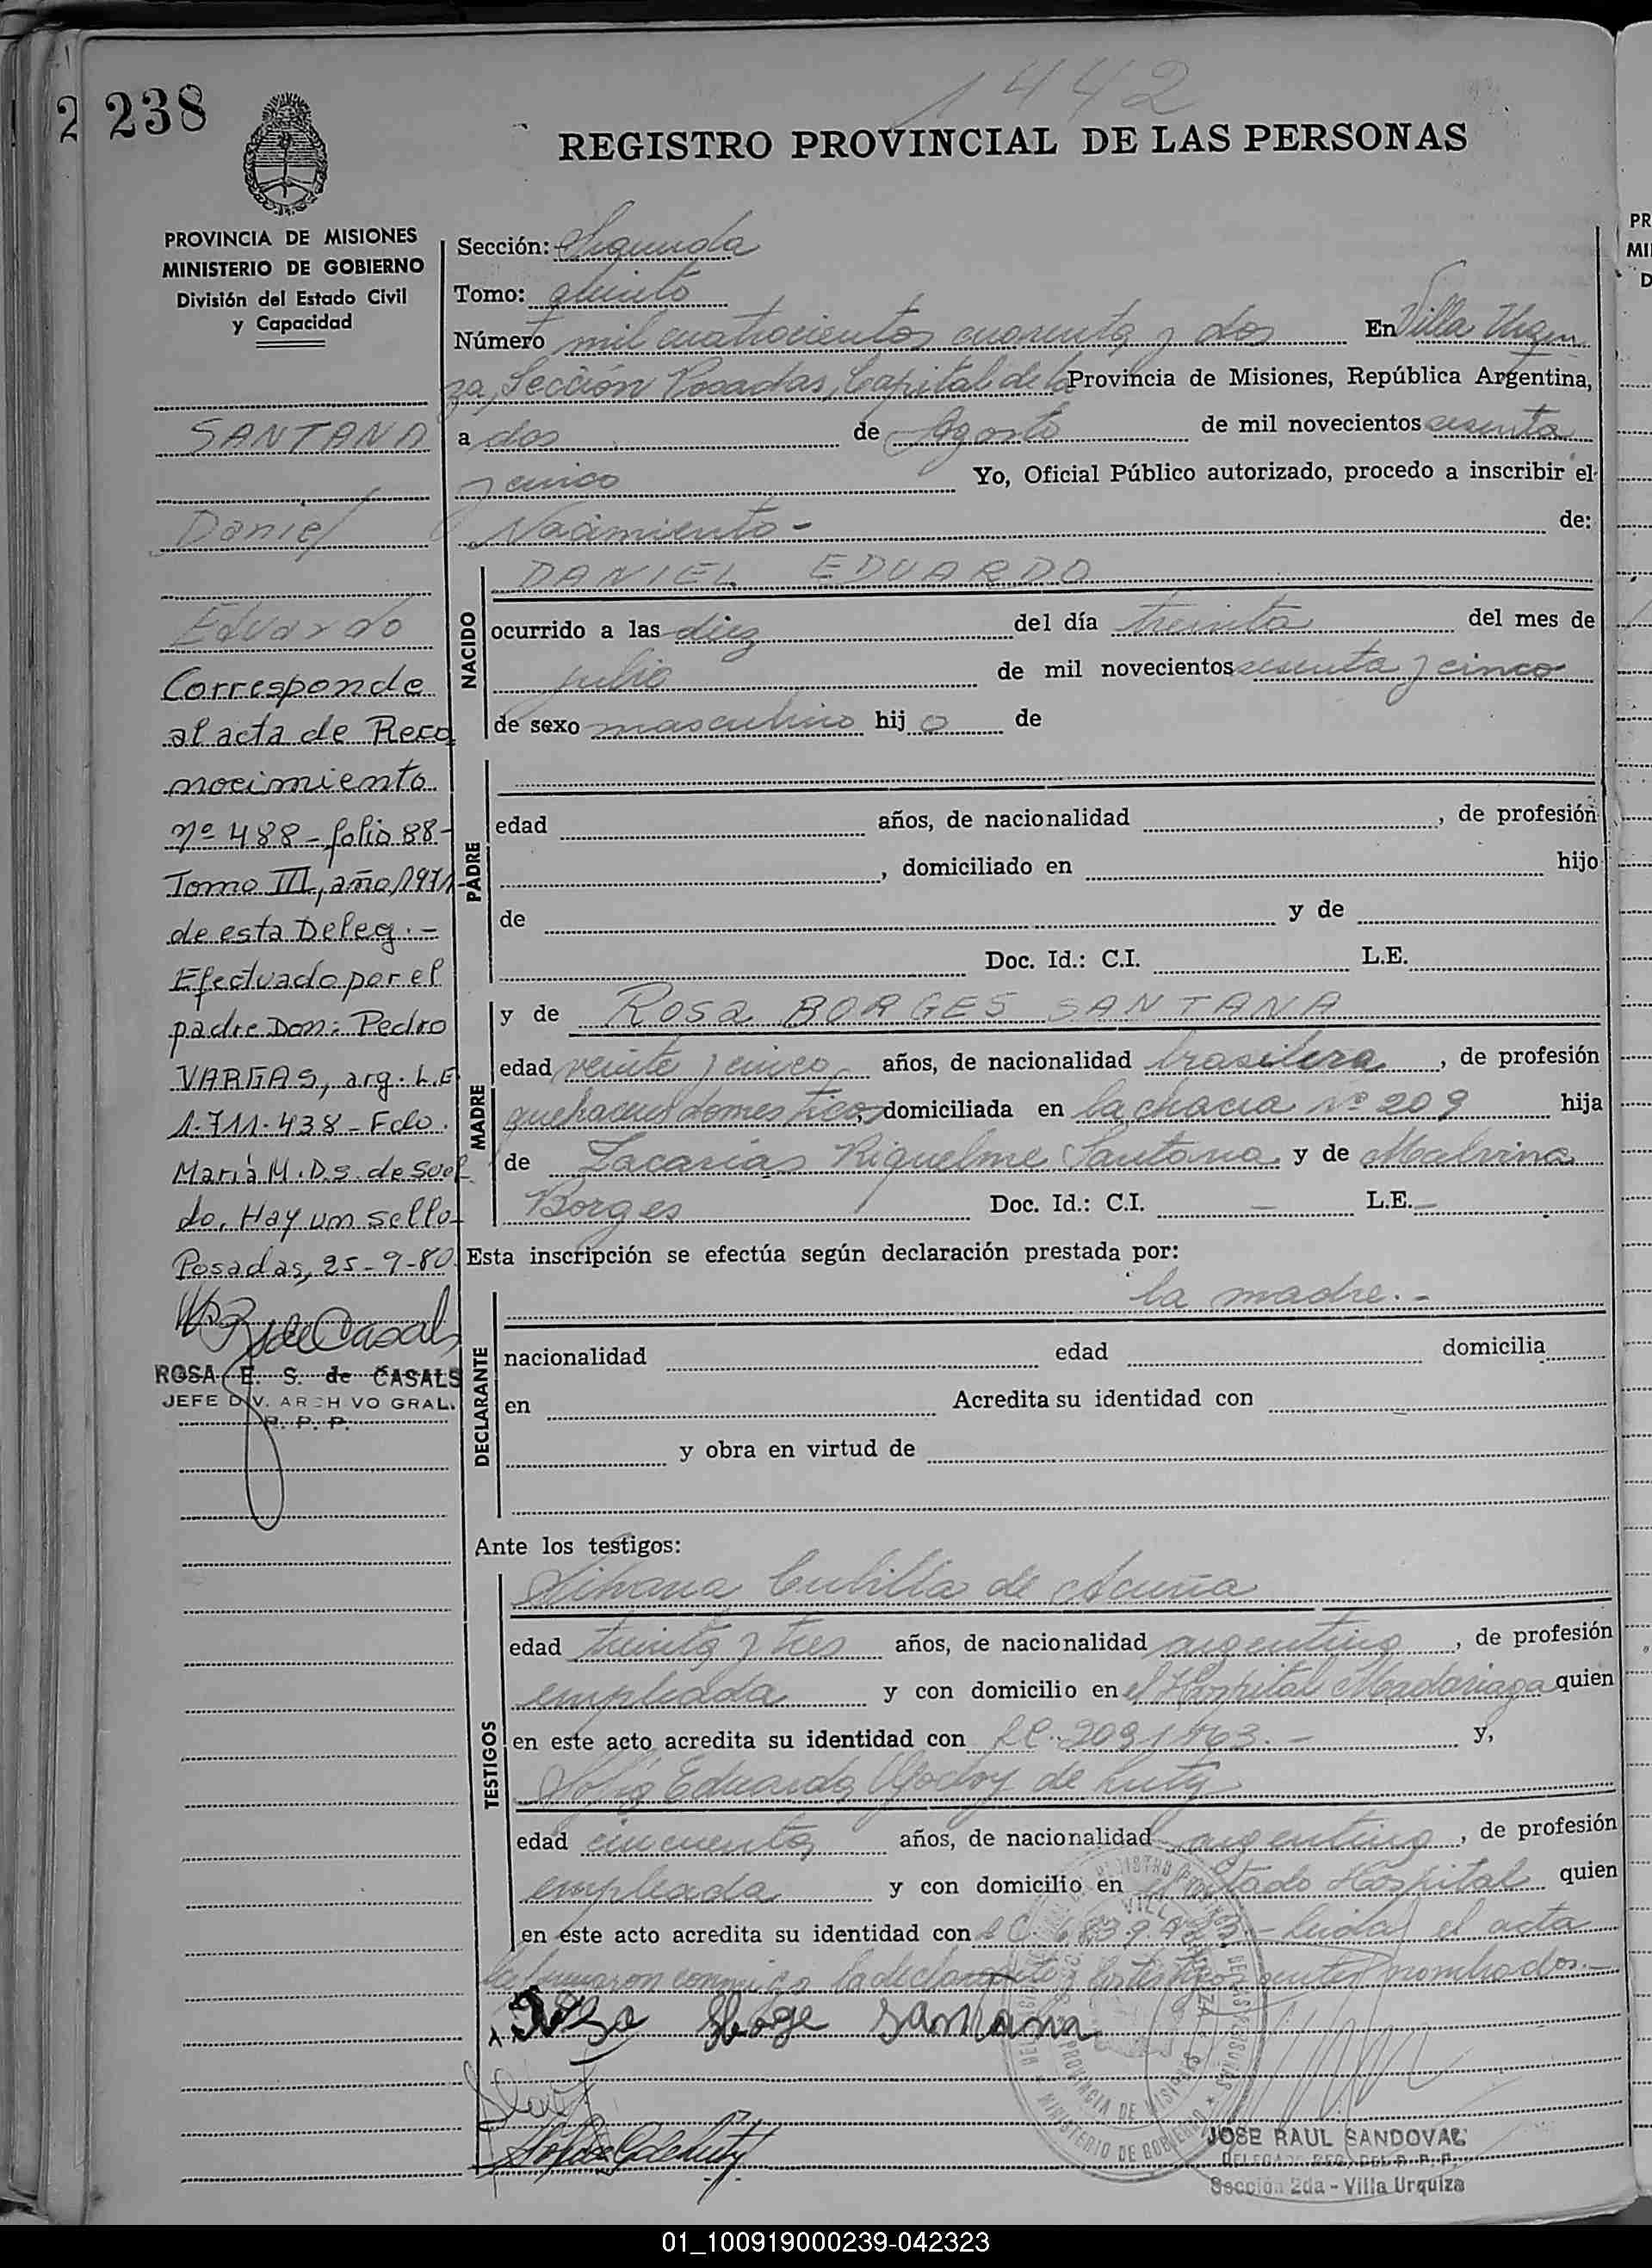 1442
238
REGISTRO PROVINCIAL DE LAS PERSONAS
PROVINCIA DE MISIONES
MINISTERIO DE GOBIERNO
División del Estado Civil
y Capacidad
SANTANA
Daniel
Eduardo
Corresponde
al acta de Reco
nocimiento
Nº 488 - folio 88 -
Tomo III, año 1971
de esta Deleg. -
Efectuado por el
padre Don: Pedro
VARGAS, arg. L.E
1.711.438 - Fdo.
María M. D. S. de Suel
do. Hay un sello -
Posadas, 25-9-80
ROSA E. S. de CASALS
JEFE DIV. ARCHIVO GRAL.
R. P. P.
Sección: Segunda
Tomo: quinto
Número mil cuatrocientos cuarenta y dos En Villa Urqui
za, Sección Posadas, Capital de la Provincia de Misiones, República Argentina,
a dos de Agosto de mil novecientos sesenta
y cinco Yo, Oficial Público autorizado, procedo a inscribir el
Nacimiento - de:
NACIDO
DANIEL EDUARDO
ocurrido a las diez del día treinta del mes de
julio de mil novecientos sesenta y cinco
de sexo masculino hijo de
PADRE
edad años, de nacionalidad , de profesión
, domiciliado en hijo
de y de
Doc. Id.: C.I. L.E.
MADRE
y de Rosa BORGES SANTANA
edad veinte y cinco años, de nacionalidad brasilera , de profesión
quehaceres domesticos, domiciliada en la chacra Nº 209 hija
de Zacarias Riquelme Santana y de Malvina
Borges Doc. Id.: C.I. - L.E. -
Esta inscripción se efectúa según declaración prestada por:
DECLARANTE
la madre. -
nacionalidad edad domicilia
en Acredita su identidad con
y obra en virtud de
Ante los testigos:
TESTIGOS
Cubilla de Acuña
edad treinta y tres años, de nacionalidad argentina , de profesión
empleada y con domicilio en el Hospital Madariaga quien
en este acto acredita su identidad con y,
Sofía Eduarda Godoy de Luty
edad cincuenta años, de nacionalidad argentina , de profesión
empleada y con domicilio en el citado Hospital quien
en este acto acredita su identidad con - Leida el acta
la firmaron conmigo la declarante y los testigos antes nombrados. -
Rosa Boge Santana
PROVINCIA DE MISIONES
MINISTERIO DE GOBIERNO
JOSE RAUL SANDOVAL
DELEGADO REG. DEL R. P. P.
Sección 2da - Villa Urquiza
01_100919000239-042323